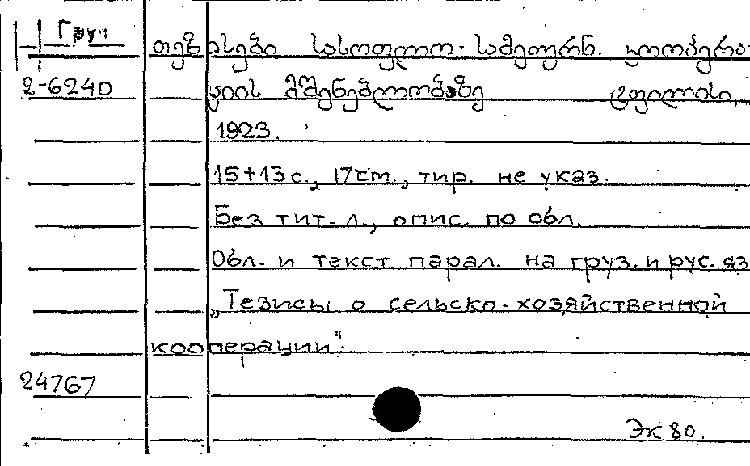 Груз
თეზისები სასოფლო-სამეურნ. კოოპერა-
2-6240 ციის მშენებლობაზე ტფილისი,
1923.
15+13 с., 17 см., тир. не указ.
Без тит. л., опис. по обл.
Обл. и текст парал. на груз. и рус. яз
„Тезисы о сельско-хозяйственной
кооперации“.
24767
Эк 80.